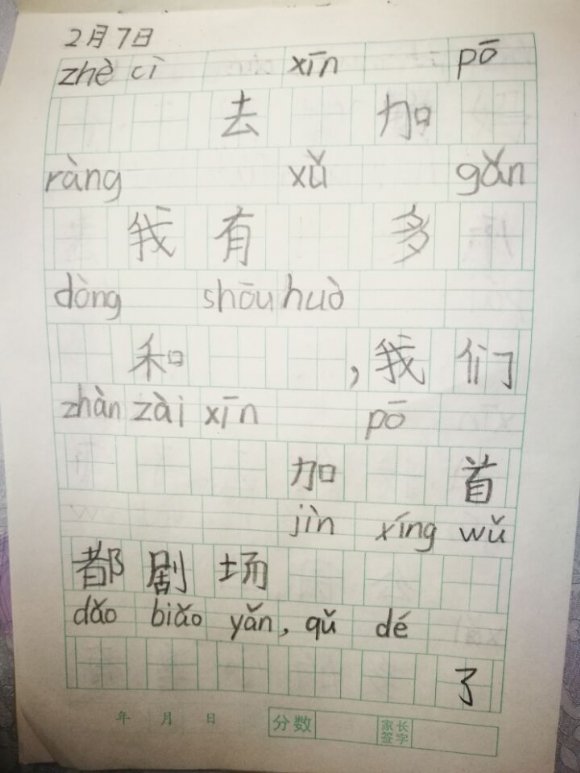 2月7日
zhè cì xīn pō
去 加
ràng xǔ gǎn
我 有 多
dòng shōu huò
和 ，我 们
zhàn zài xīn pō
加 首
jìn xíng wǔ
都 剧 场
dǎo biǎo yǎn, qǔ dé
了
年 月 日 分数 家长签字